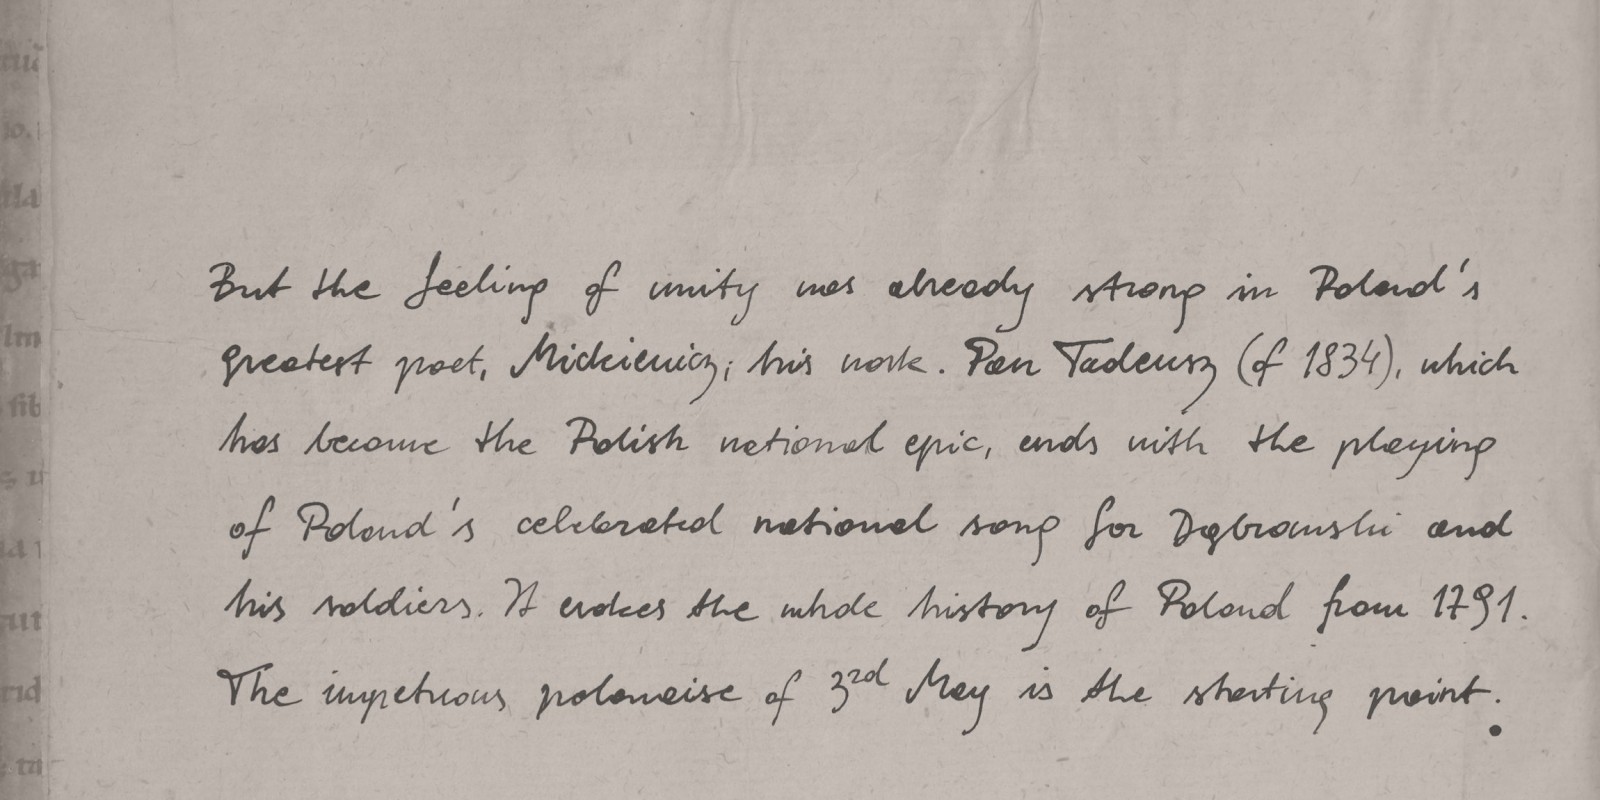 But the feeling of unity was already strong in Poland's
greatest poet, Mickiewicz; his work. Pan Tadeusz (of 1834), which
has become the Polish national epic, ends with the playing
of Poland's celebrated national song for Dąbrowski and
his soldiers. It evokes the whole history of Poland from 1791.
The impetuous polonaise of 3rd May is the starting point.